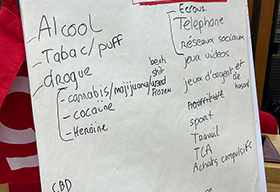 - Alcool
- Tabac/puff
- drogue
- cannabis/marijuana/weed
beuh
shit
frozen
- cocaïne
- Heroïne
CBD
Ecrans.
Telephone
réseaux sociaux
jeux videos
jeux d'argent et de hasard
sport
Travail
TCA
Achats compulsifs